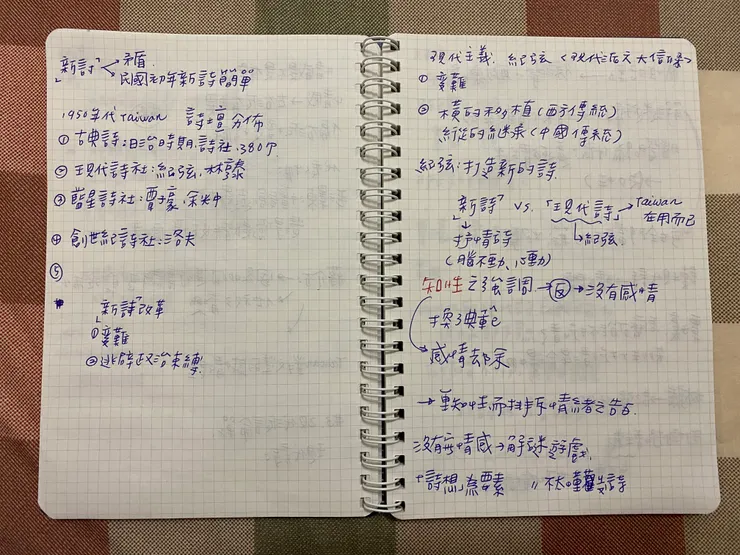 「新詩」 矛盾.
民國初年新詩簡單
1950年代 Taiwan 詩壇分佈
① 古典詩:日治時期,詩社:380个
② 現代詩社:紀弦.林
③ 藍星詩社:覃子豪.余光中
④ 創世紀詩社:洛夫
⑤
「新詩」改革
①變難
②逃避政治束縛.
現代主義. 紀弦〈現代派六大信條〉
① 變難
② 橫的移植(西方傳統)
縱的繼承(中國傳統)
紀弦:打造新的詩.
「新詩」 VS. 「現代詩」→Taiwan
在用而已
抒情詩 紀弦.
(腦不動、心動)
知性之強調 → 反 → 沒有感情
換了典範
感情去除
→ 重知性,而排斥情緒之告白.
沒有無情感→解謎遊戲.
詩想為要素 〃 不太